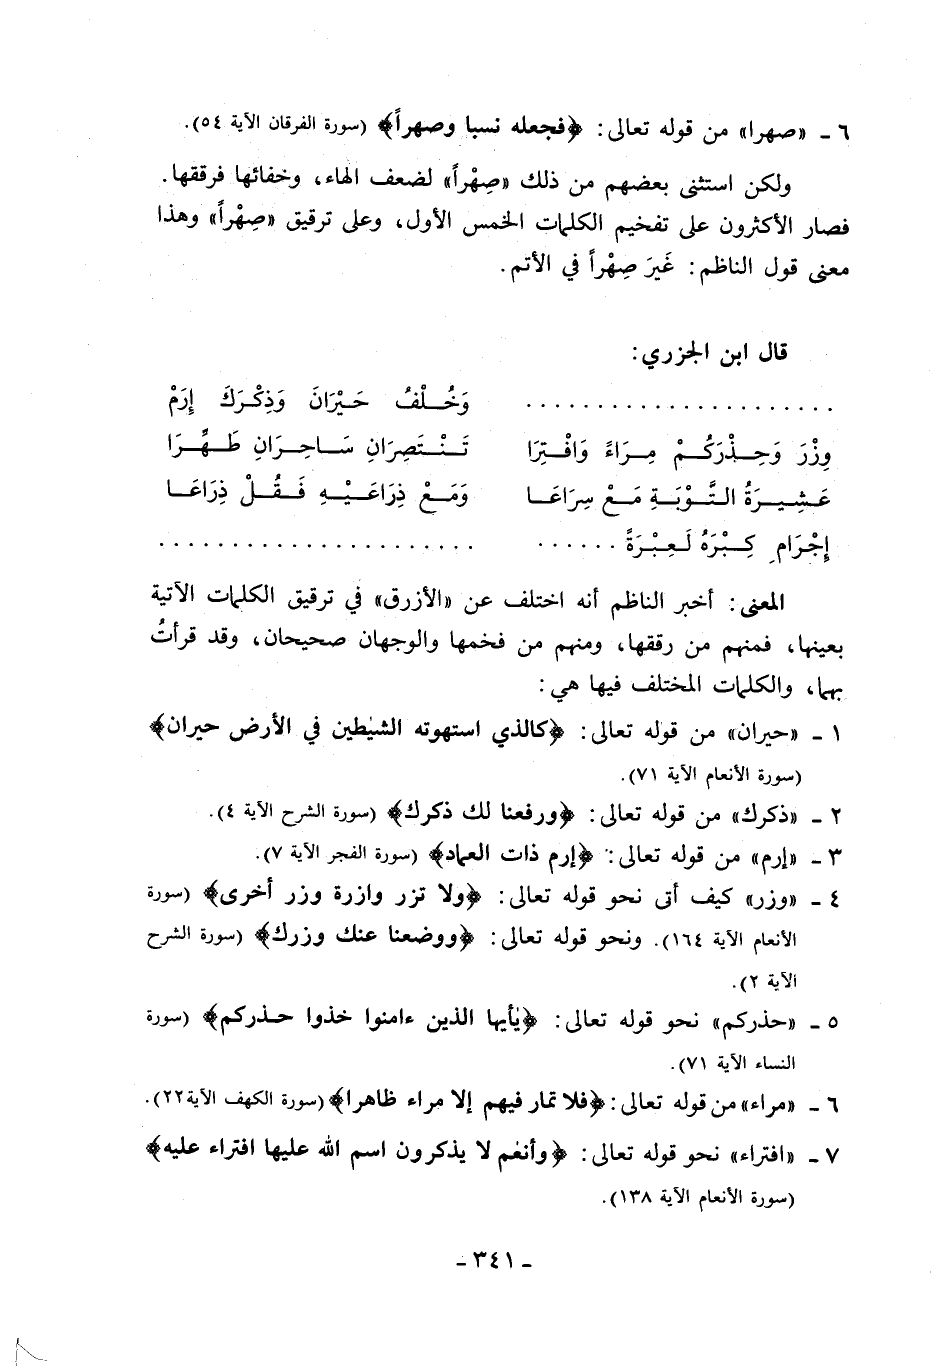 ٦ ـ «صهرا» من قوله تعالى: ﴿فجعله نسبا وصهراً﴾ (سورة الفرقان الآية ٥٤).
ولكن استثنى بعضهم من ذلك «صِهْراً» لضعف الهاء، وخفائها فرققها.
فصار الأكثرون على تفخيم الكلمات الخمس الأول، وعلى ترقيق «صِهْراً» وهذا
معنى قول الناظم: غَيرَ صِهْراً في الأتم.
قال ابن الجزري:
. . . . . . . . . . . . . . . . . . . . . . وَخُــلْفُ حَـيْرَانَ وَذِكْـرَكَ إِرَمْ
وِزْرَ وَحِـذْرَكُـمْ مِـرَاءً وَافْـتِرَا تَـنْـتَصِرَانِ سَـاحِـرَانِ طَـهِّـرَا
عَـشِـيـرَةُ التَّـوْبَـةِ مَـعْ سِرَاعَـا وَمَـعْ ذِرَاعَـيْـهِ فَـقُـلْ ذِرَاعَـا
إِجْرَامِ كِـبْرَهُ لَـعِبْـرَةً . . . . . . . . . . . . . . . . . . . . . . . . . . . .
المعنى: أخبر الناظم أنه اختلف عن «الأزرق» في ترقيق الكلمات الآتية
بعينها، فمنهم من رققها، ومنهم من فخمها والوجهان صحيحان، وقد قرأتُ
بهما، والكلمات المختلف فيها هي:
١ ـ «حيران» من قوله تعالى: ﴿كالذي استهوته الشيٰطين في الأرض حيران﴾
(سورة الأنعام الآية ٧١).
٢ ـ «ذكرك» من قوله تعالى: ﴿ورفعنا لك ذكرك﴾ (سورة الشرح الآية ٤).
٣ ـ «إرم» من قوله تعالى: ﴿إرم ذات العماد﴾ (سورة الفجر الآية ٧).
٤ ـ «وزر» كيف أتى نحو قوله تعالى: ﴿ولا تزر وازرة وزر أخرى﴾ (سورة
الأنعام الآية ١٦٤). ونحو قوله تعالى: ﴿ووضعنا عنك وزرك﴾ (سورة الشرح
الآية ٢).
٥ ـ «حذركم» نحو قوله تعالى: ﴿يٰأيها الذين ءامنوا خذوا حـذركم﴾ (سورة
النساء الآية ٧١).
٦ ـ «مراء» من قوله تعالى: ﴿فلا تمار فيهم إلا مراء ظاهرا﴾ (سورة الكهف الآية ٢٢).
٧ ـ «افتراء» نحو قوله تعالى: ﴿وأنعٰم لا يذكرون اسم الله عليها افتراء عليه﴾
(سورة الأنعام الآية ١٣٨).
ـ ٣٤١ ـ